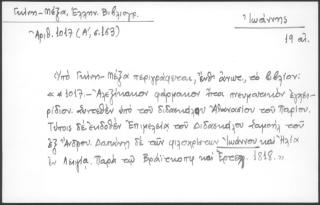 Γκίνη - Μέξα, Ἑλλην. Βιβλιογρ.
Ἀριθ. 1017 (Α', σ. 163)
Ἰωάννης
19 αἰ.
Ὑπὸ Γκίνη - Μέξα περιγράφεται, οὕτως, τὸ βιβλίον:
« * 1017.- Ἀλεξίκακον φάρμακον ἤτοι πνευματικὸν ἐγχει-
ρίδιον. Συντεθὲν ὑπὸ τοῦ διδασκάλου Ἀθανασίου τοῦ Παρίου.
Τύποις δὲ ἐκδοθὲν Ἐπιμελείᾳ τοῦ Διδασκάλου τοῦ
ἐξ Ἄνδρου. Δαπάνῃ δὲ τῶν φιλοχρίστων Ἰωάννου καὶ Ἠλία
ἐν Λειψίᾳ, Παρὰ τῷ Βράϊτκοπφ καὶ Ἔρτελ, 1818. »